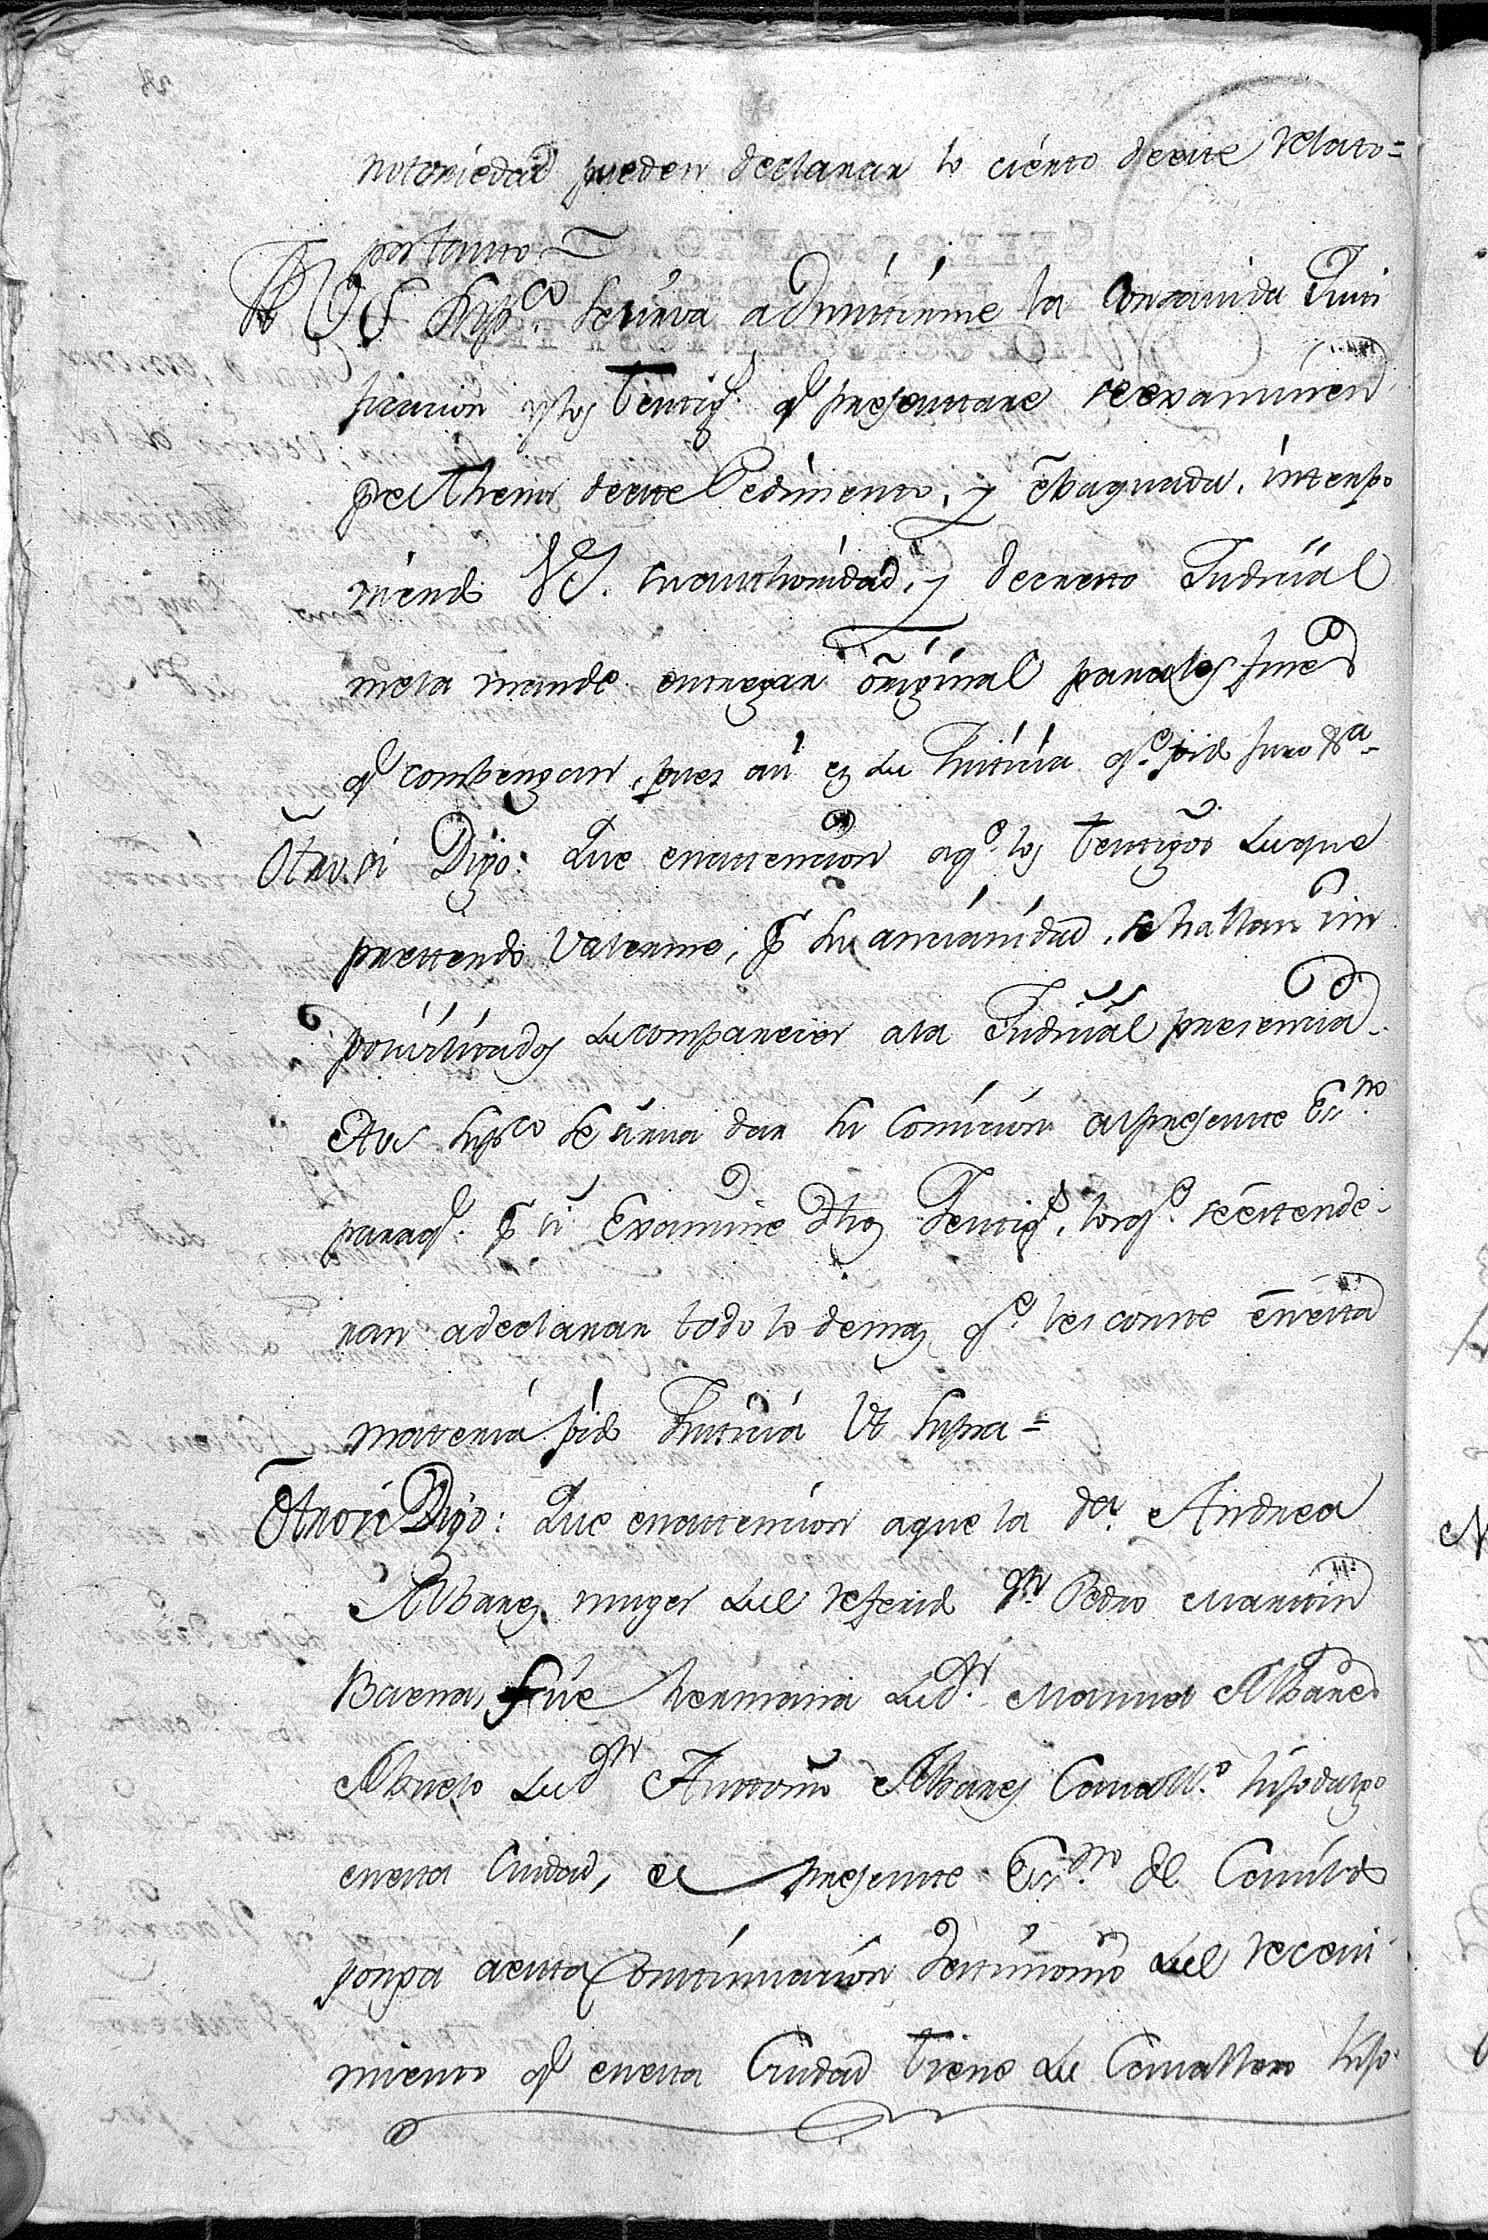 notoriedad pueden declarar lo cierto deeste relato=
portanto
A VS suppco se sirva admitirme la Consavida Justi
ficacion y los testigs q presentare seexaminen
por el thenor deeste Pedimento, y evaquada, interpo
niendo VS. su authoridad, y decreto Judicial
mela mande entregar original paralos fines
q combengan, pues asi es de Justicia qe pido Juro &a
Otro si Digo: Que enattencion aqe los testigos deque
prettendo Valerme, por su ancianidad, se hallan im
posivilitados decomparecer ala Judicial presencia
A VS suppco se sirva dar su Comicion alpresente Essno
paraq. por si Examine dhos testigs, losqe seestende
ran adeclarar todo lo demas qe les conste enesta
materia pido Justicia Vt supra=
Otrosi Digo: Que enattencion aque la da. Andrea
Albares muger del referido dn Pedro Martin
Baena, fue hermana de dn Manuel Albares
Abuelo de dn Antonio Albares Cavallo. hijodalgo
enesta Ciudad, el presente Essno de Cavildo
ponga aesta Continuacion testimonio del recevi
miento q enesta Ciudad tiene de Cavallero hijo